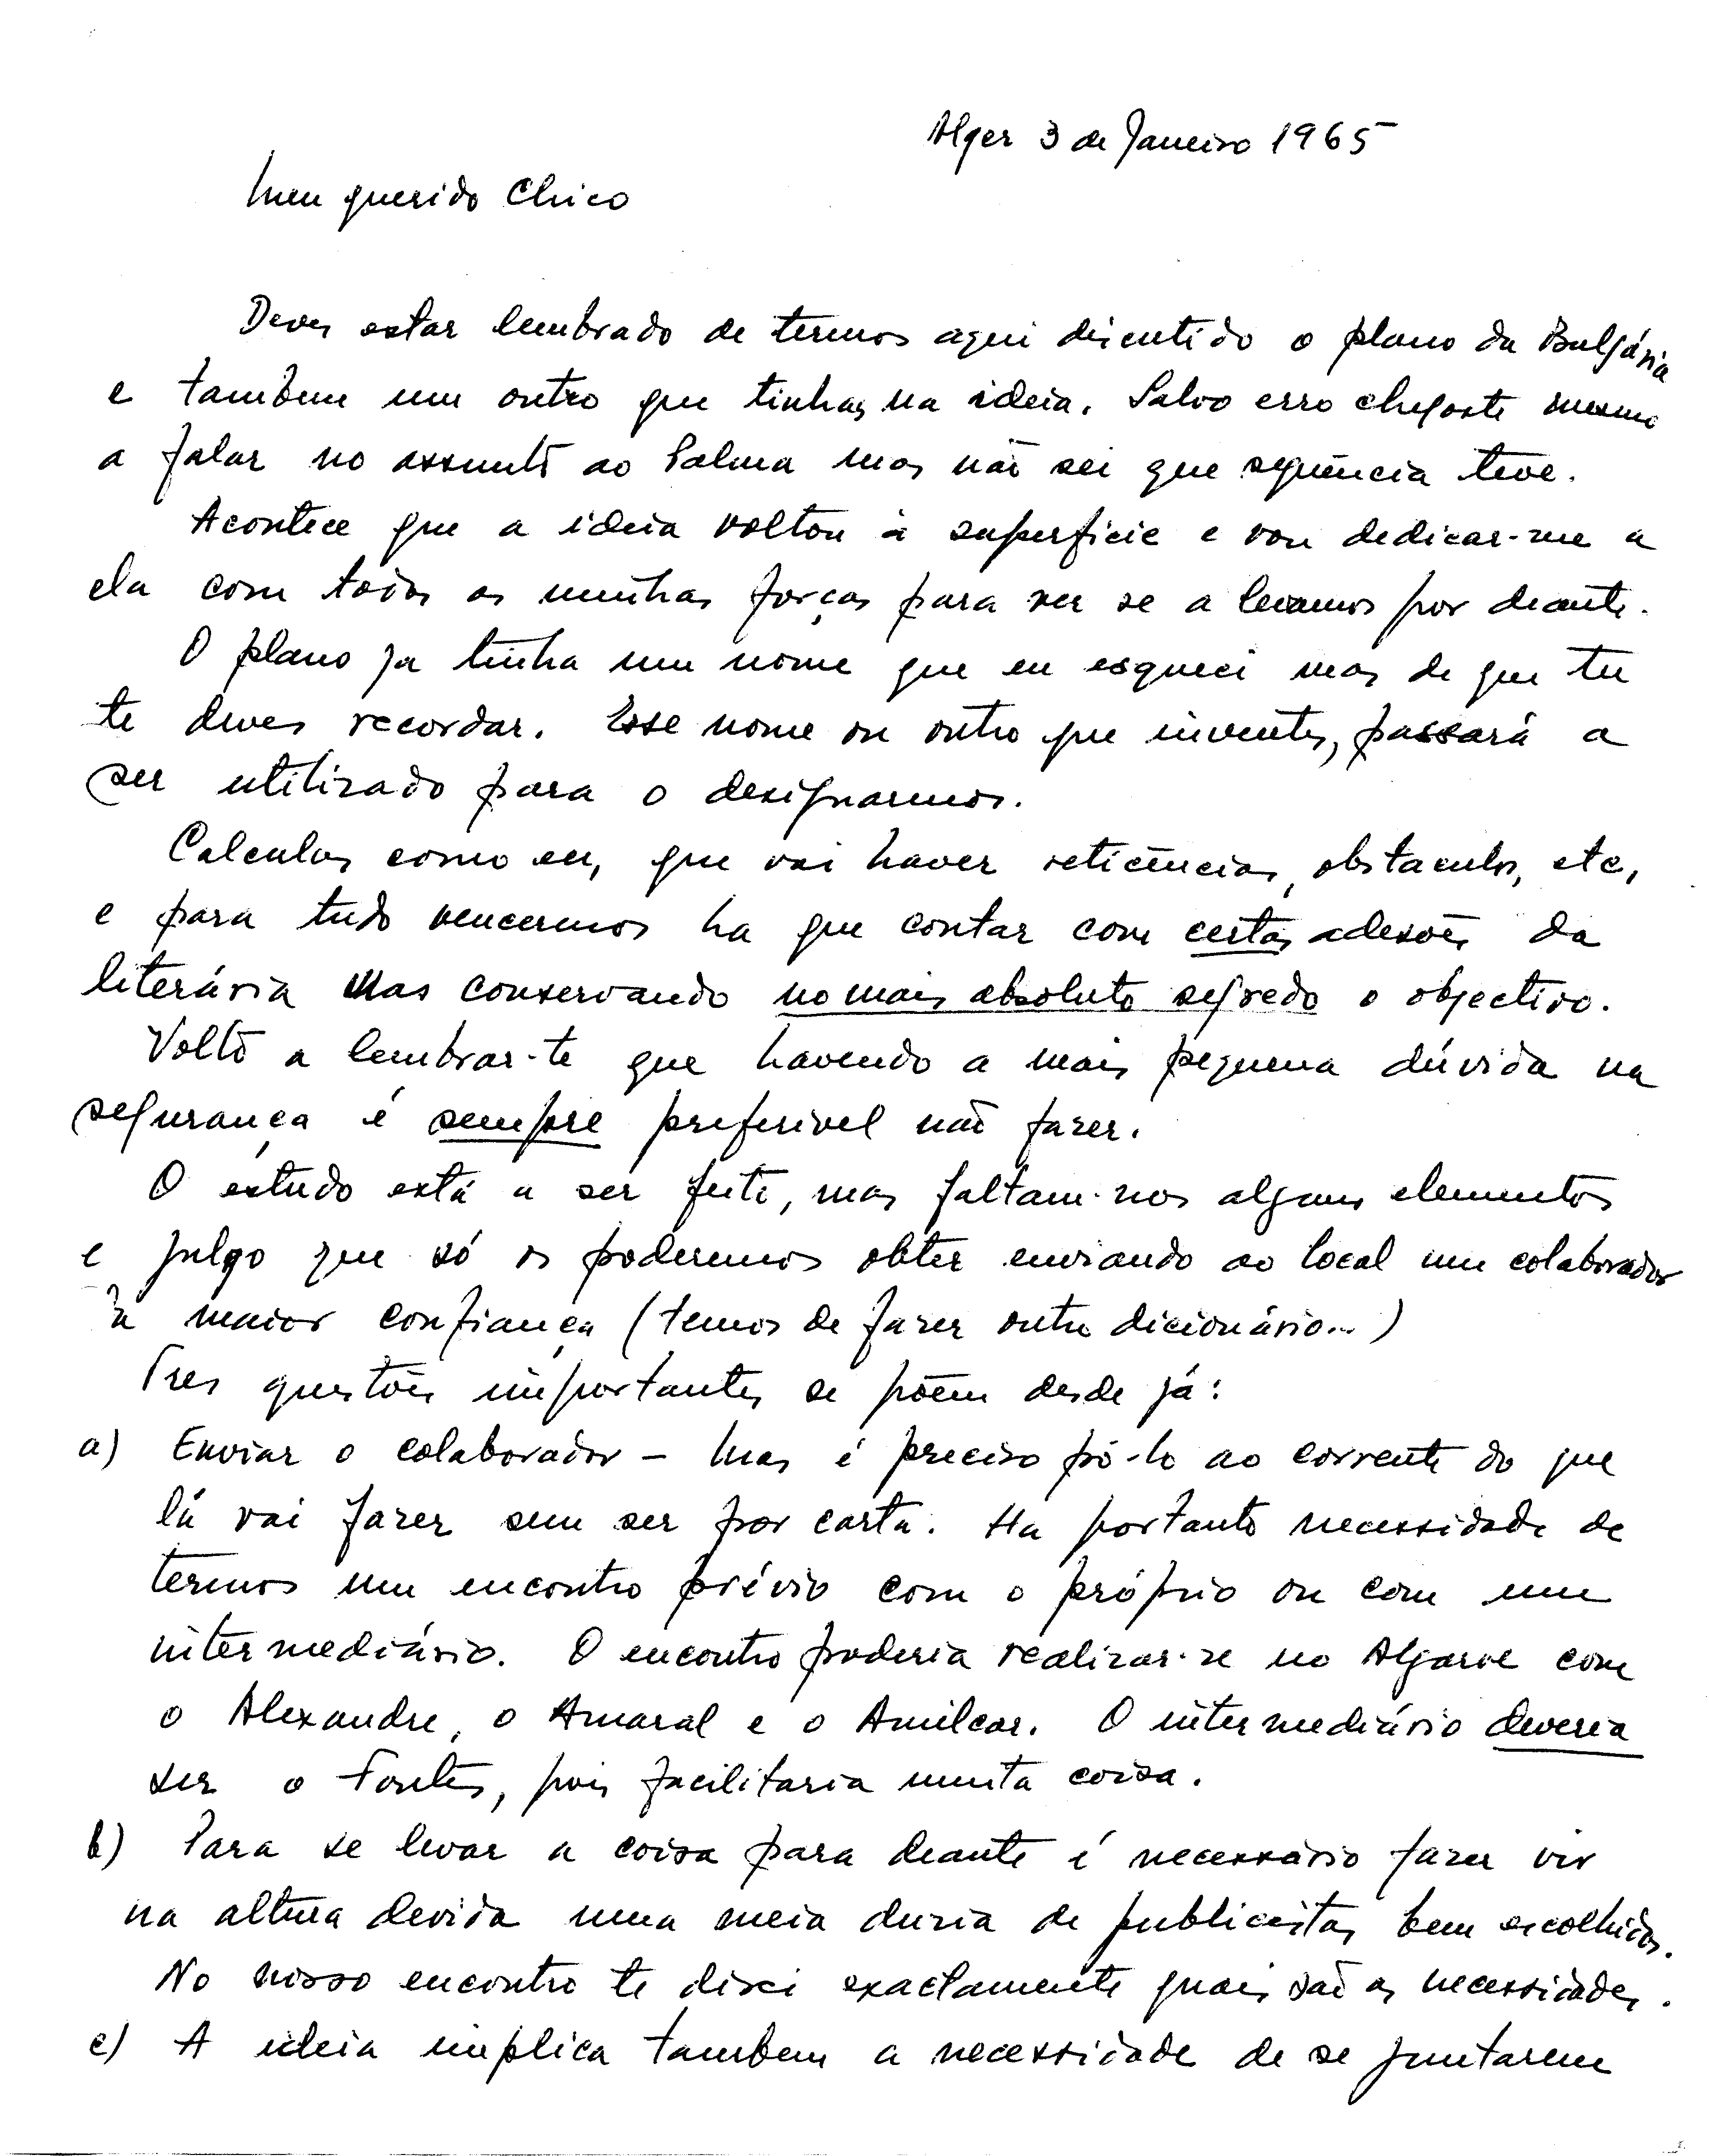 Alger 3 de Janeiro 1965
Meu querido Chico
Deves estar lembrado de termos aqui discutido o plano da Bulgária
e tambem um outro que tinhas na ideia. Salvo erro chegaste mesmo
a falar no assunto ao Palma mas não sei que sequência teve.
Acontece que a ideia voltou à superficie e vou dedicar-me a
ela com todas as minhas forças para ver se a levamos por deante.
O plano ja tinha um nome que eu esqueci mas de que tu
te deves recordar. Esse nome ou outro que inventes, passará a
ser utilizado para o designarmos.
Calculas como eu, que vai haver reticências, obstaculos, etc,
e para tudo vencermos ha que contar com certas adesões da
literária mas conservando no mais absoluto segredo o objectivo.
Volto a lembrar-te que havendo a mais pequena dúvida na
segurança é sempre preferivel não fazer.
O estudo está a ser feito, mas faltam-nos alguns elementos
e julgo que só os poderemos obter enviando ao local um colaborador
à maior confiança (temos de fazer outro dicionário...)
Tres questões importantes se põem desde já:
a) Enviar o colaborador - Mas é preciso pô-lo ao corrente do que
lá vai fazer sem ser por carta. Ha portanto necessidade de
termos um encontro prévio com o próprio ou com um
intermediário. O encontro poderia realizar-se no Algarve com
o Alexandre, o Amaral e o Amilcar. O intermediário deveria
ser o Fontes, pois facilitaria muita coisa.
b) Para se levar a coisa para deante é necessário fazer vir
na altura devida uma meia duzia de publicistas bem escolhidos.
No nosso encontro te direi exactamente quais são as necessidades.
c) A ideia implica tambem a necessidade de se juntarem